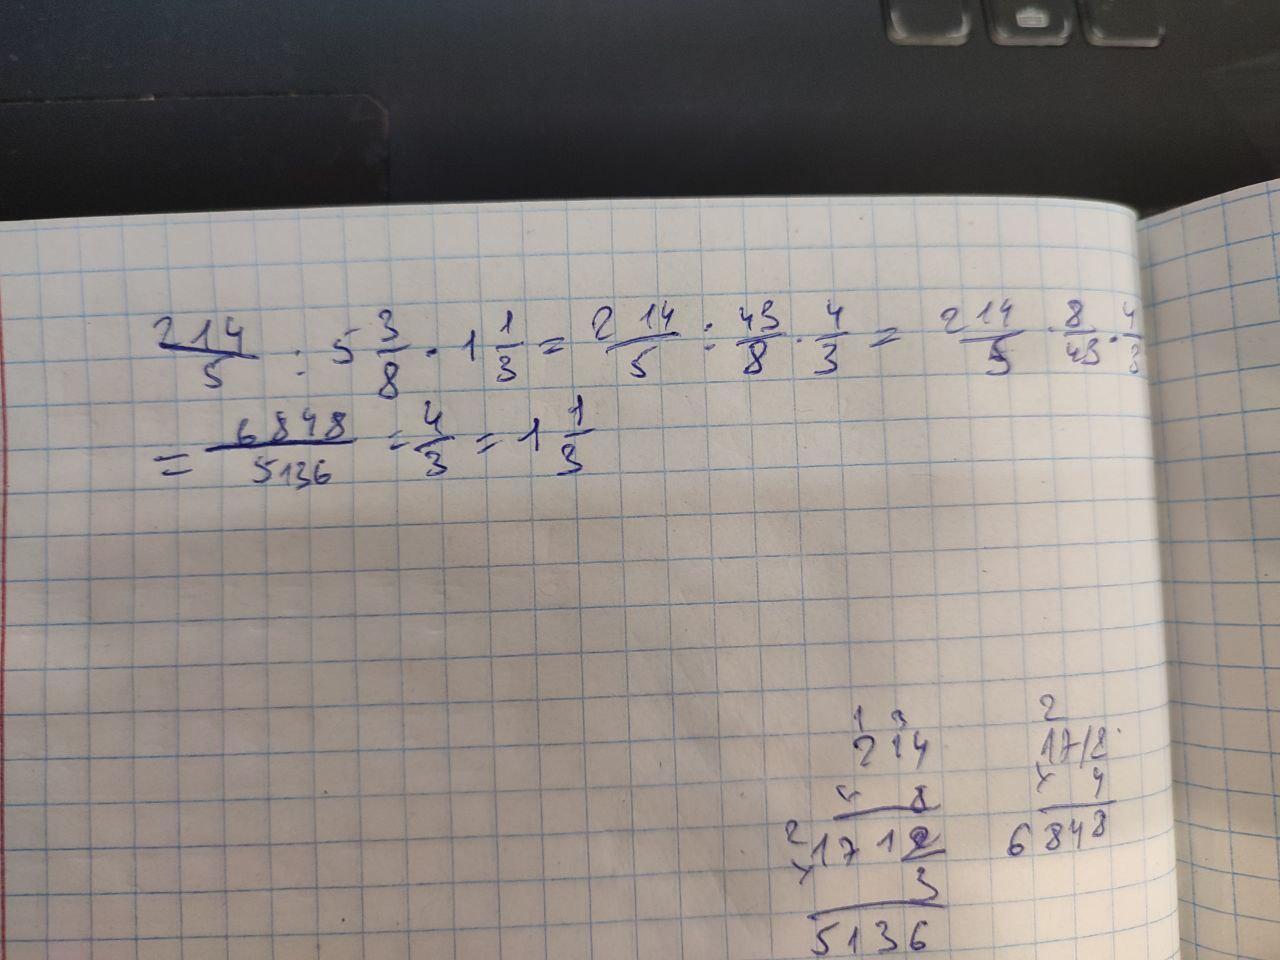 214/5 : 5 3/8 · 1 1/3 = 214/5 : 43/8 · 4/3 = 214/5 · 8/43 · 4/3
= 6848/5136 = 4/3 = 1 1/3
1 3
214
× 8
2
1712
× 3
5136
2
1712
× 4
6848